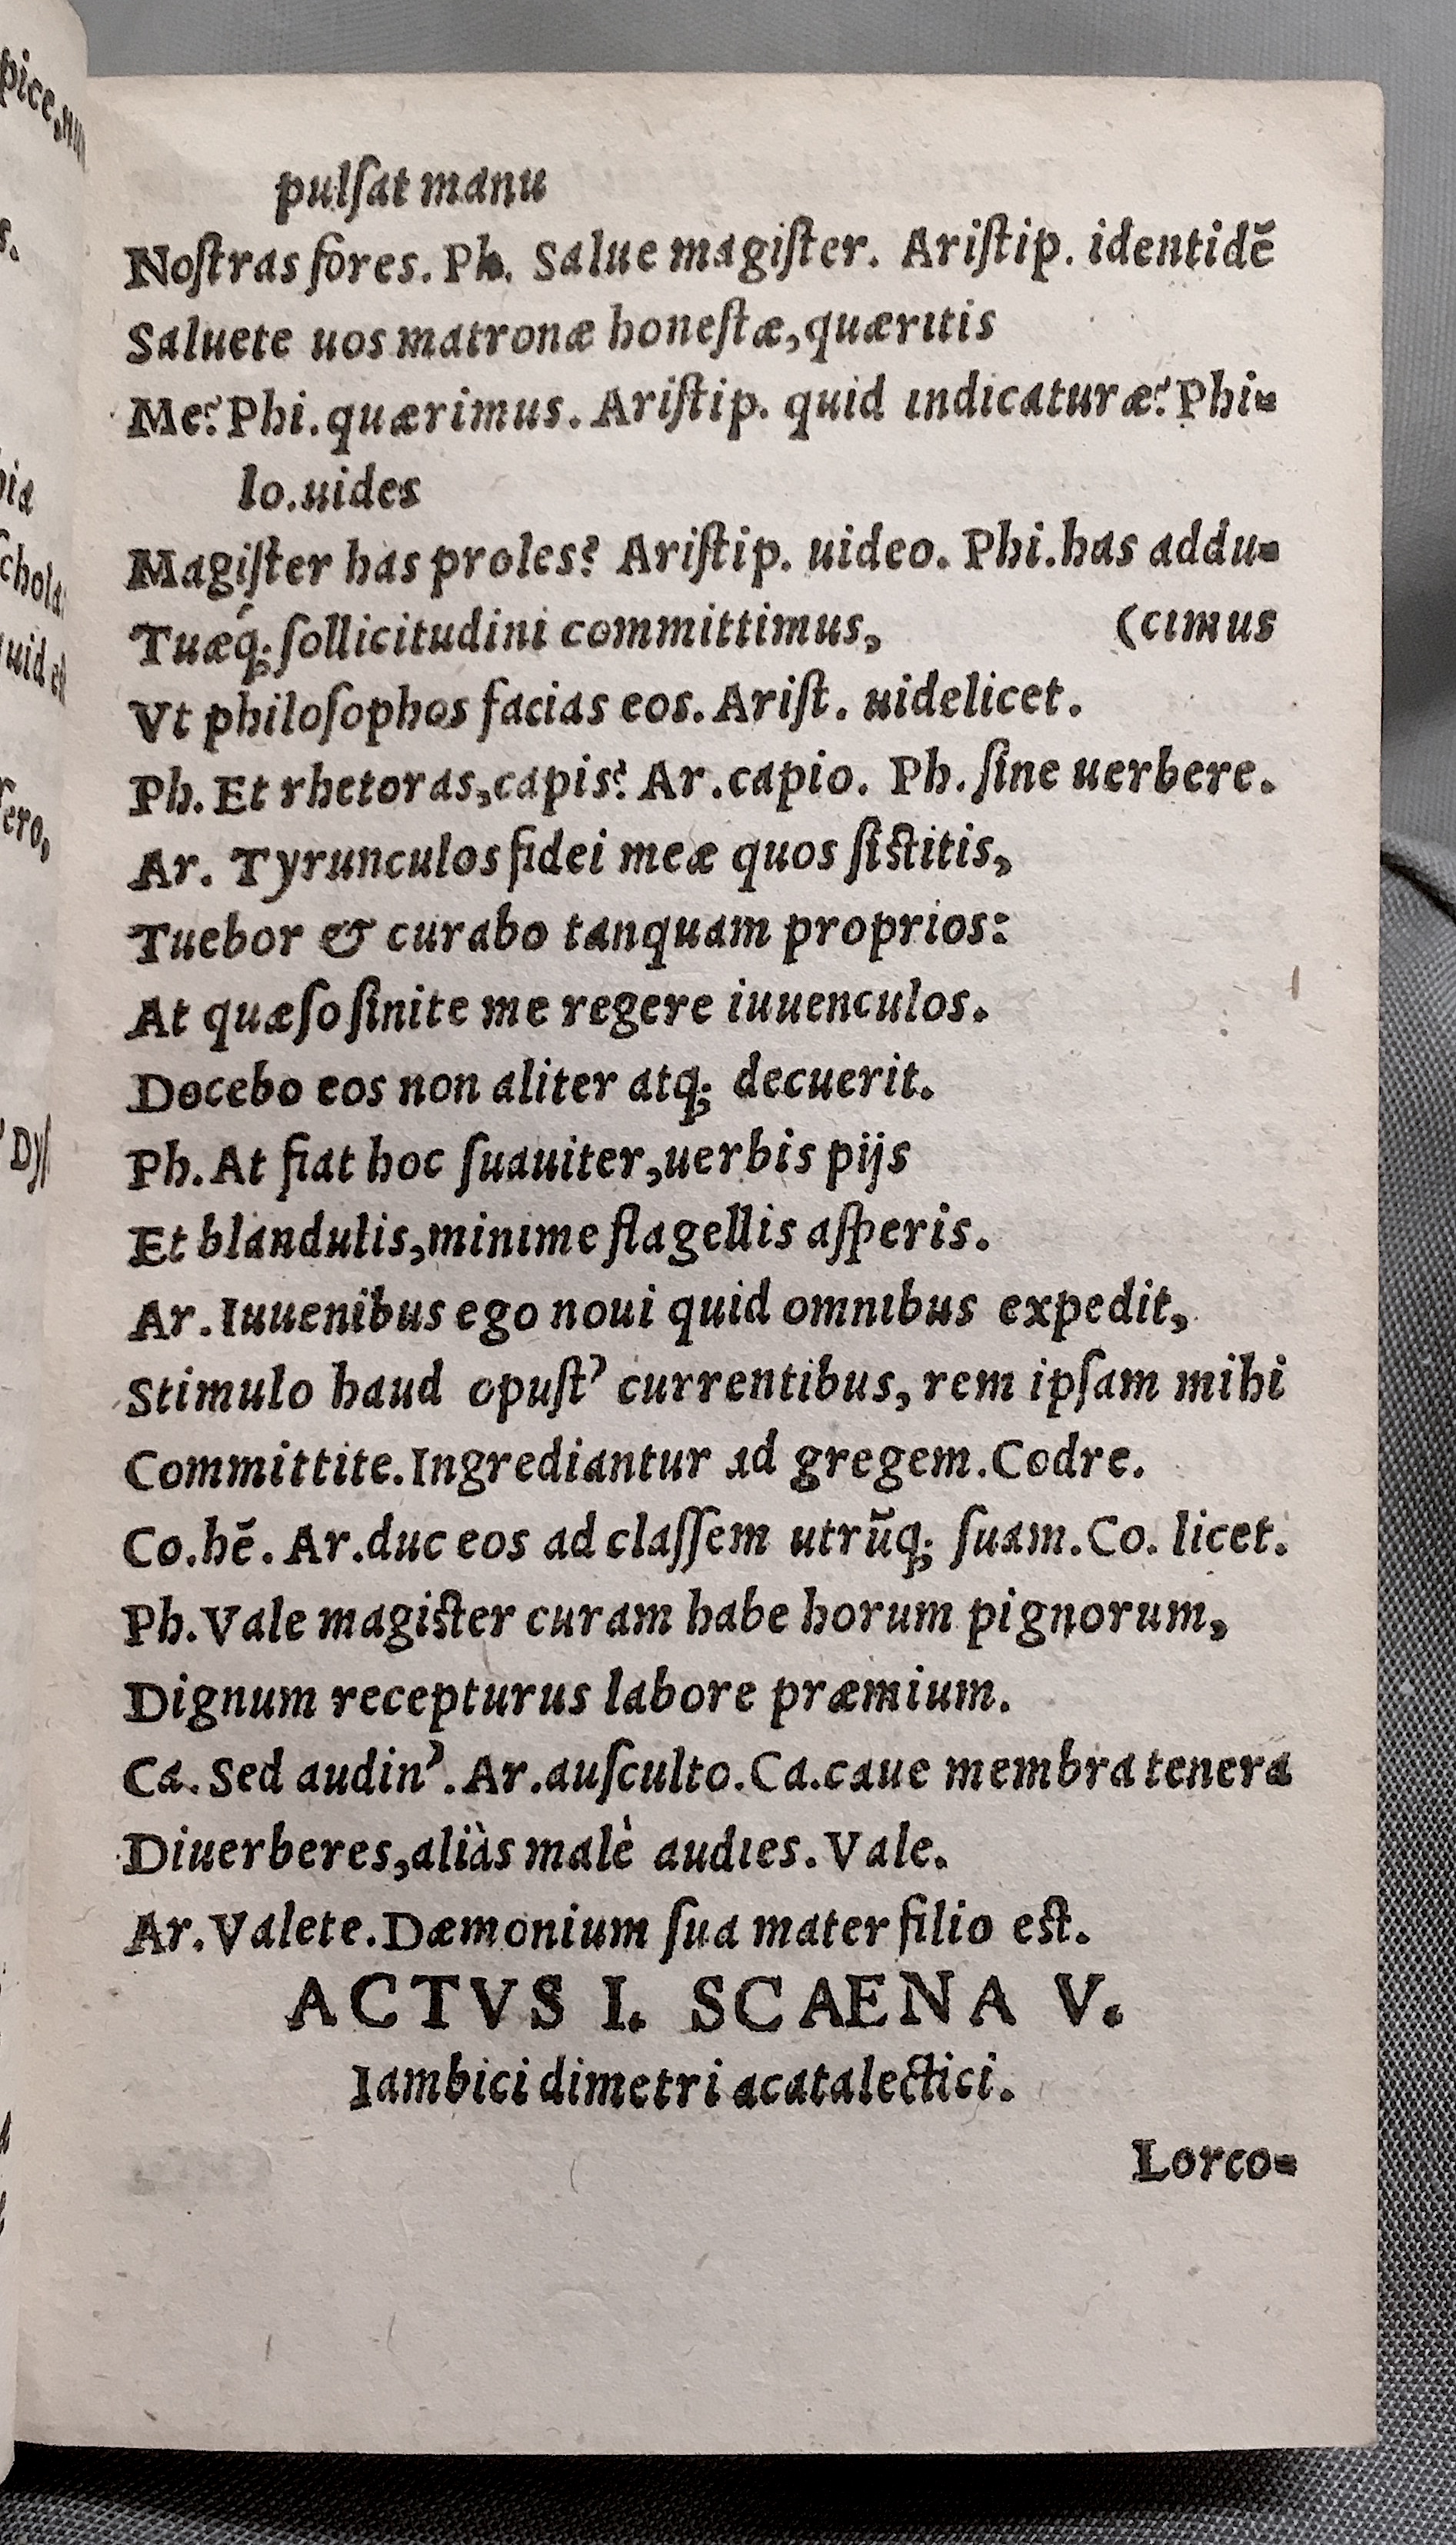 pulſat manu
Noſtras fores. Ph. Salue magiſter. Ariſtip. identidē
Saluete uos matronæ honeſtæ, quæritis
Me? Phi. quærimus. Ariſtip. quid indicaturæ? Phi=
lo. uides
Magiſter has proles? Ariſtip. uideo. Phi. has addu=
Tuæq́; ſollicitudini committimus, (cimus
Vt philoſophos facias eos. Ariſt. uidelicet.
Ph. Et rhetoras, capis? Ar. capio. Ph. ſine uerbere.
Ar. Tyrunculos fidei meæ quos ſiſtitis,
Tuebor & curabo tanquam proprios:
At quæſo ſinite me regere iuuenculos.
Docebo eos non aliter atq; decuerit.
Ph. At fiat hoc ſuauiter, uerbis pijs
Et blandulis, minime flagellis aſperis.
Ar. Iuuenibus ego noui quid omnibus expedit,
Stimulo haud opuſt’ currentibus, rem ipſam mihi
Committite. Ingrediantur ad gregem. Codre.
Co. hē. Ar. duc eos ad claſſem utrūq; ſuam. Co. licet.
Ph. Vale magiſter curam habe horum pignorum,
Dignum recepturus labore præmium.
Ca. Sed audin’. Ar. auſculto. Ca. caue membra tenera
Diuerberes, aliàs malè audies. Vale.
Ar. Valete. Dæmonium ſua mater filio eſt.
ACTVS I. SCAENA V.
Iambici dimetri acatalectici.
Lorco=